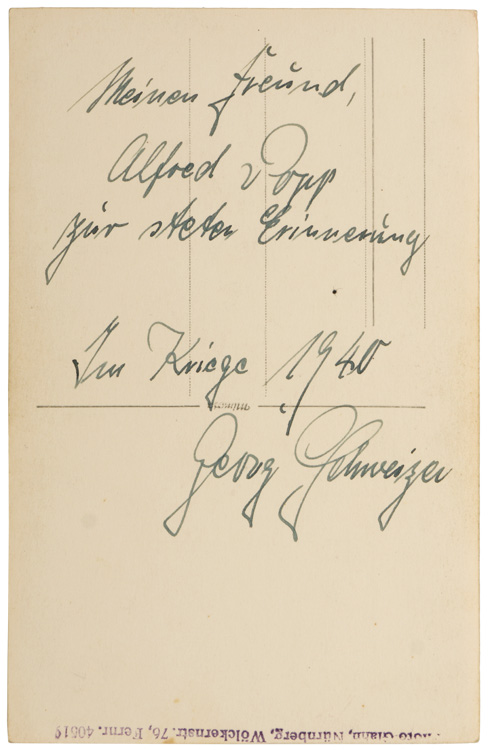 Meinen Freund,
Alfred Popp
zur steten Erinnerung
Im Kriege 1940
Georg Schweizer
Nürnberg, Wölckernstr. 76, Fernr. 40519